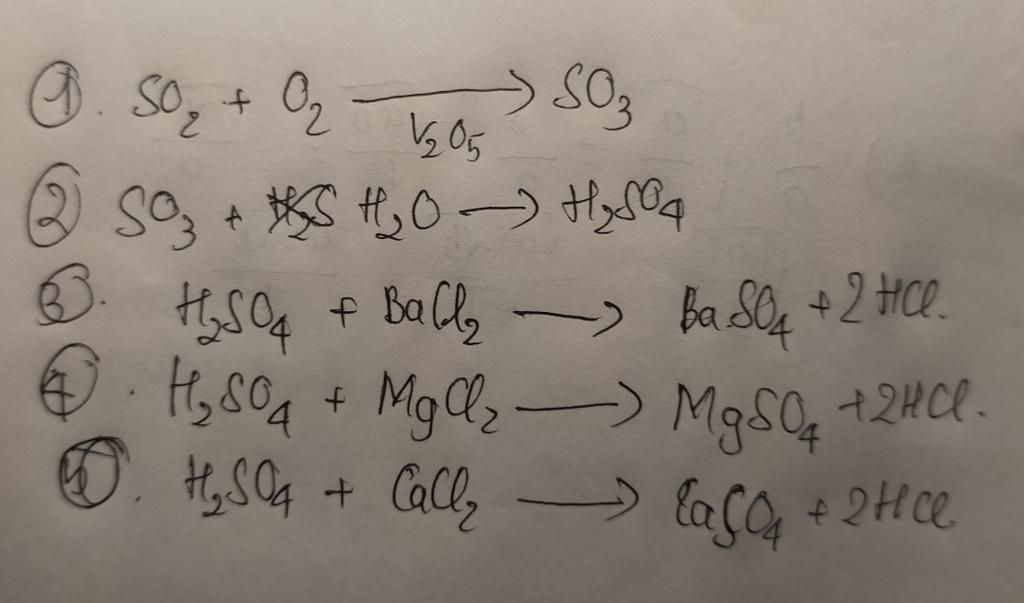 ①. SO₂ + O₂ ⟶ SO₃
V₂O₅
② SO₃ + H₂O ⟶ H₂SO₄
③. H₂SO₄ + BaCl₂ ⟶ BaSO₄ + 2HCl.
④. H₂SO₄ + MgCl₂ ⟶ MgSO₄ + 2HCl.
⑤. H₂SO₄ + CaCl₂ ⟶ CaSO₄ + 2HCl